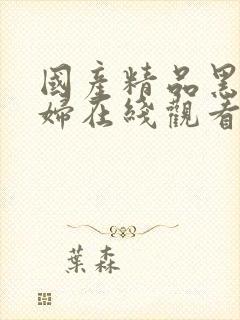 國產精品黑
婦在綫觀看
葉森